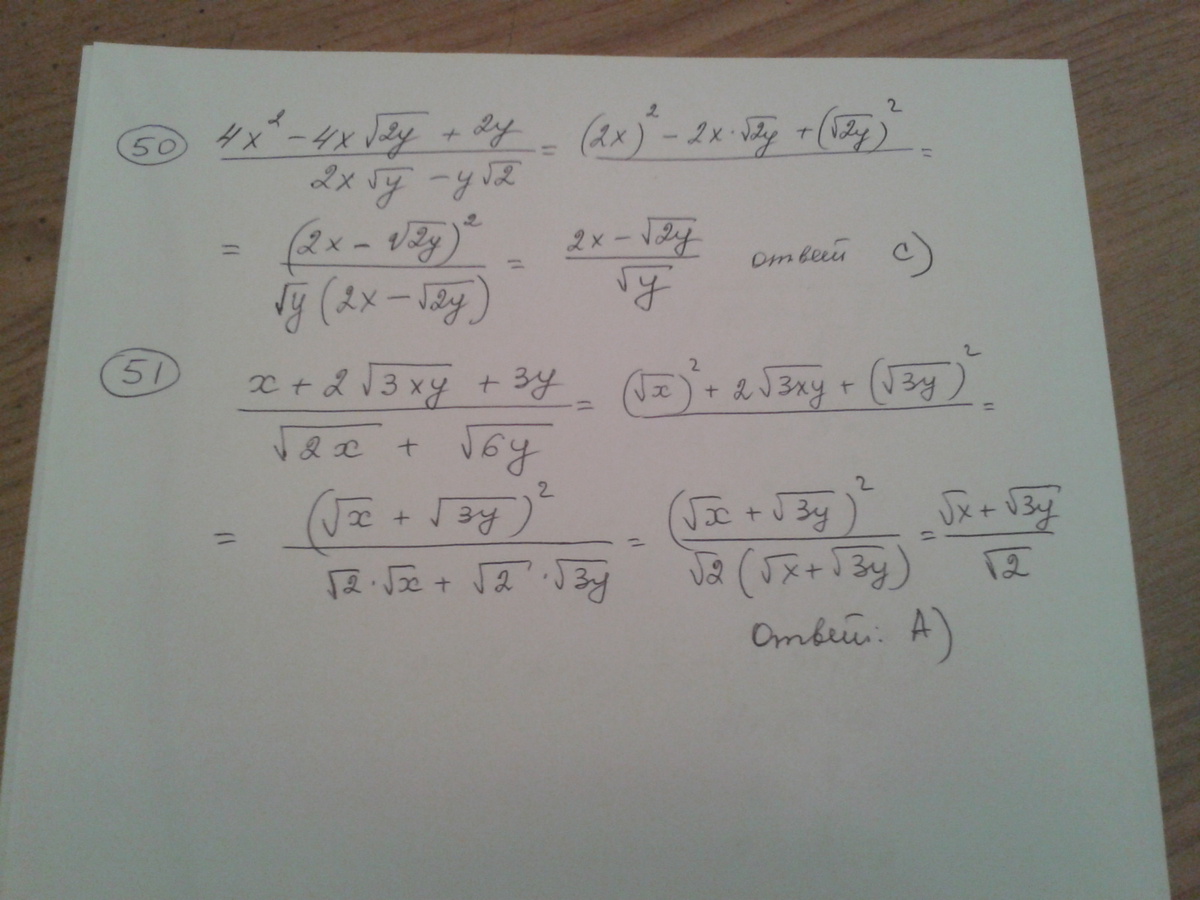 50 (4x² - 4x√2y + 2y)/(2x√y - y√2) = (2x)² - 2x·√2y + (√2y)² =
= (2x - √2y)²/(√y(2x - √2y)) = (2x - √2y)/√y ответ C)
51 (x + 2√3xy + 3y)/(√2x + √6y) = (√x)² + 2√3xy + (√3y)² =
= (√x + √3y)²/(√2·√x + √2·√3y) = (√x + √3y)²/(√2(√x + √3y)) = (√x + √3y)/√2
Ответ: А)